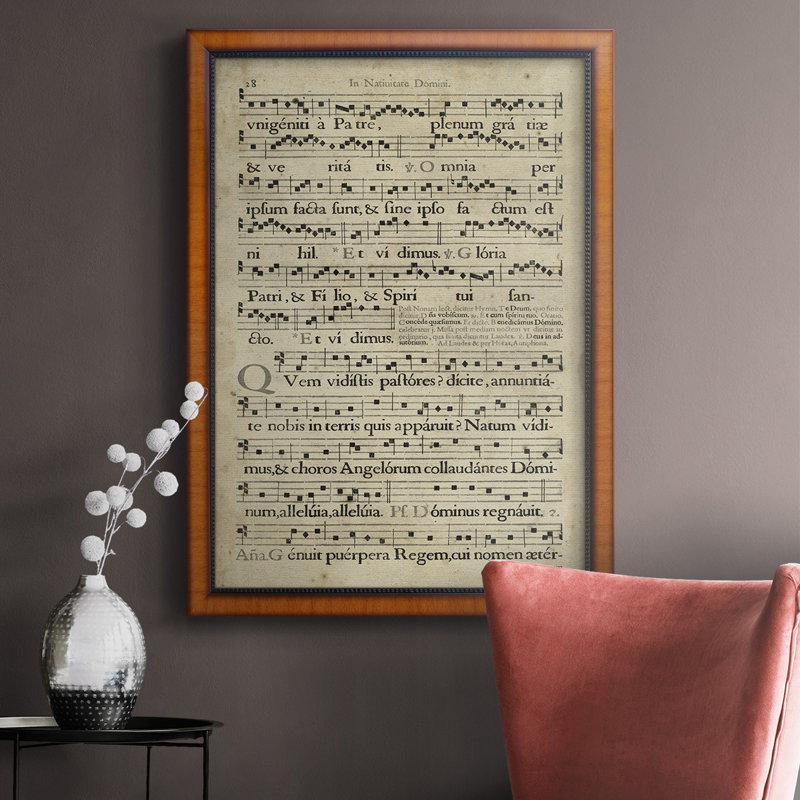 28 In Natiuitate Domini.
vnigéniti à Pa tre, plenum grá tiæ
& ve ritá tis. ℣. O mnia per
ipſum facta ſunt, & ſine ipſo fa ctum eſt
ni hil. *Et ví dimus. ℣. Glória
Patri, & Fí lio, & Spirí tui ſan-
cto. *Et ví dimus.
Poſt Nonam lect. dicitur Hymnus, Te Deum, quo finito
dicitur, Dñs vobiſcum. ℟. Et cum ſpiritu tuo. Oratio,
Concéde quæſumus. Et dicto, Benedicámus Dómino,
celebratur j. Miſſa poſt mediam noctem
Laudes. ℣. Deus in ad-
iutórium. Ad Laudes & per Horas, Antiphona.
QVem vidíſtis paſtóres? dícite, annuntiá-
te nobis in terris quis appáruit? Natum vídi-
mus, & choros Angelórum collaudántes Dómi-
num, allelúia, allelúia. Pſ. Dóminus regnáuit. 2.
Aña. Génuit puérpera Regem, cui nomen ætér-